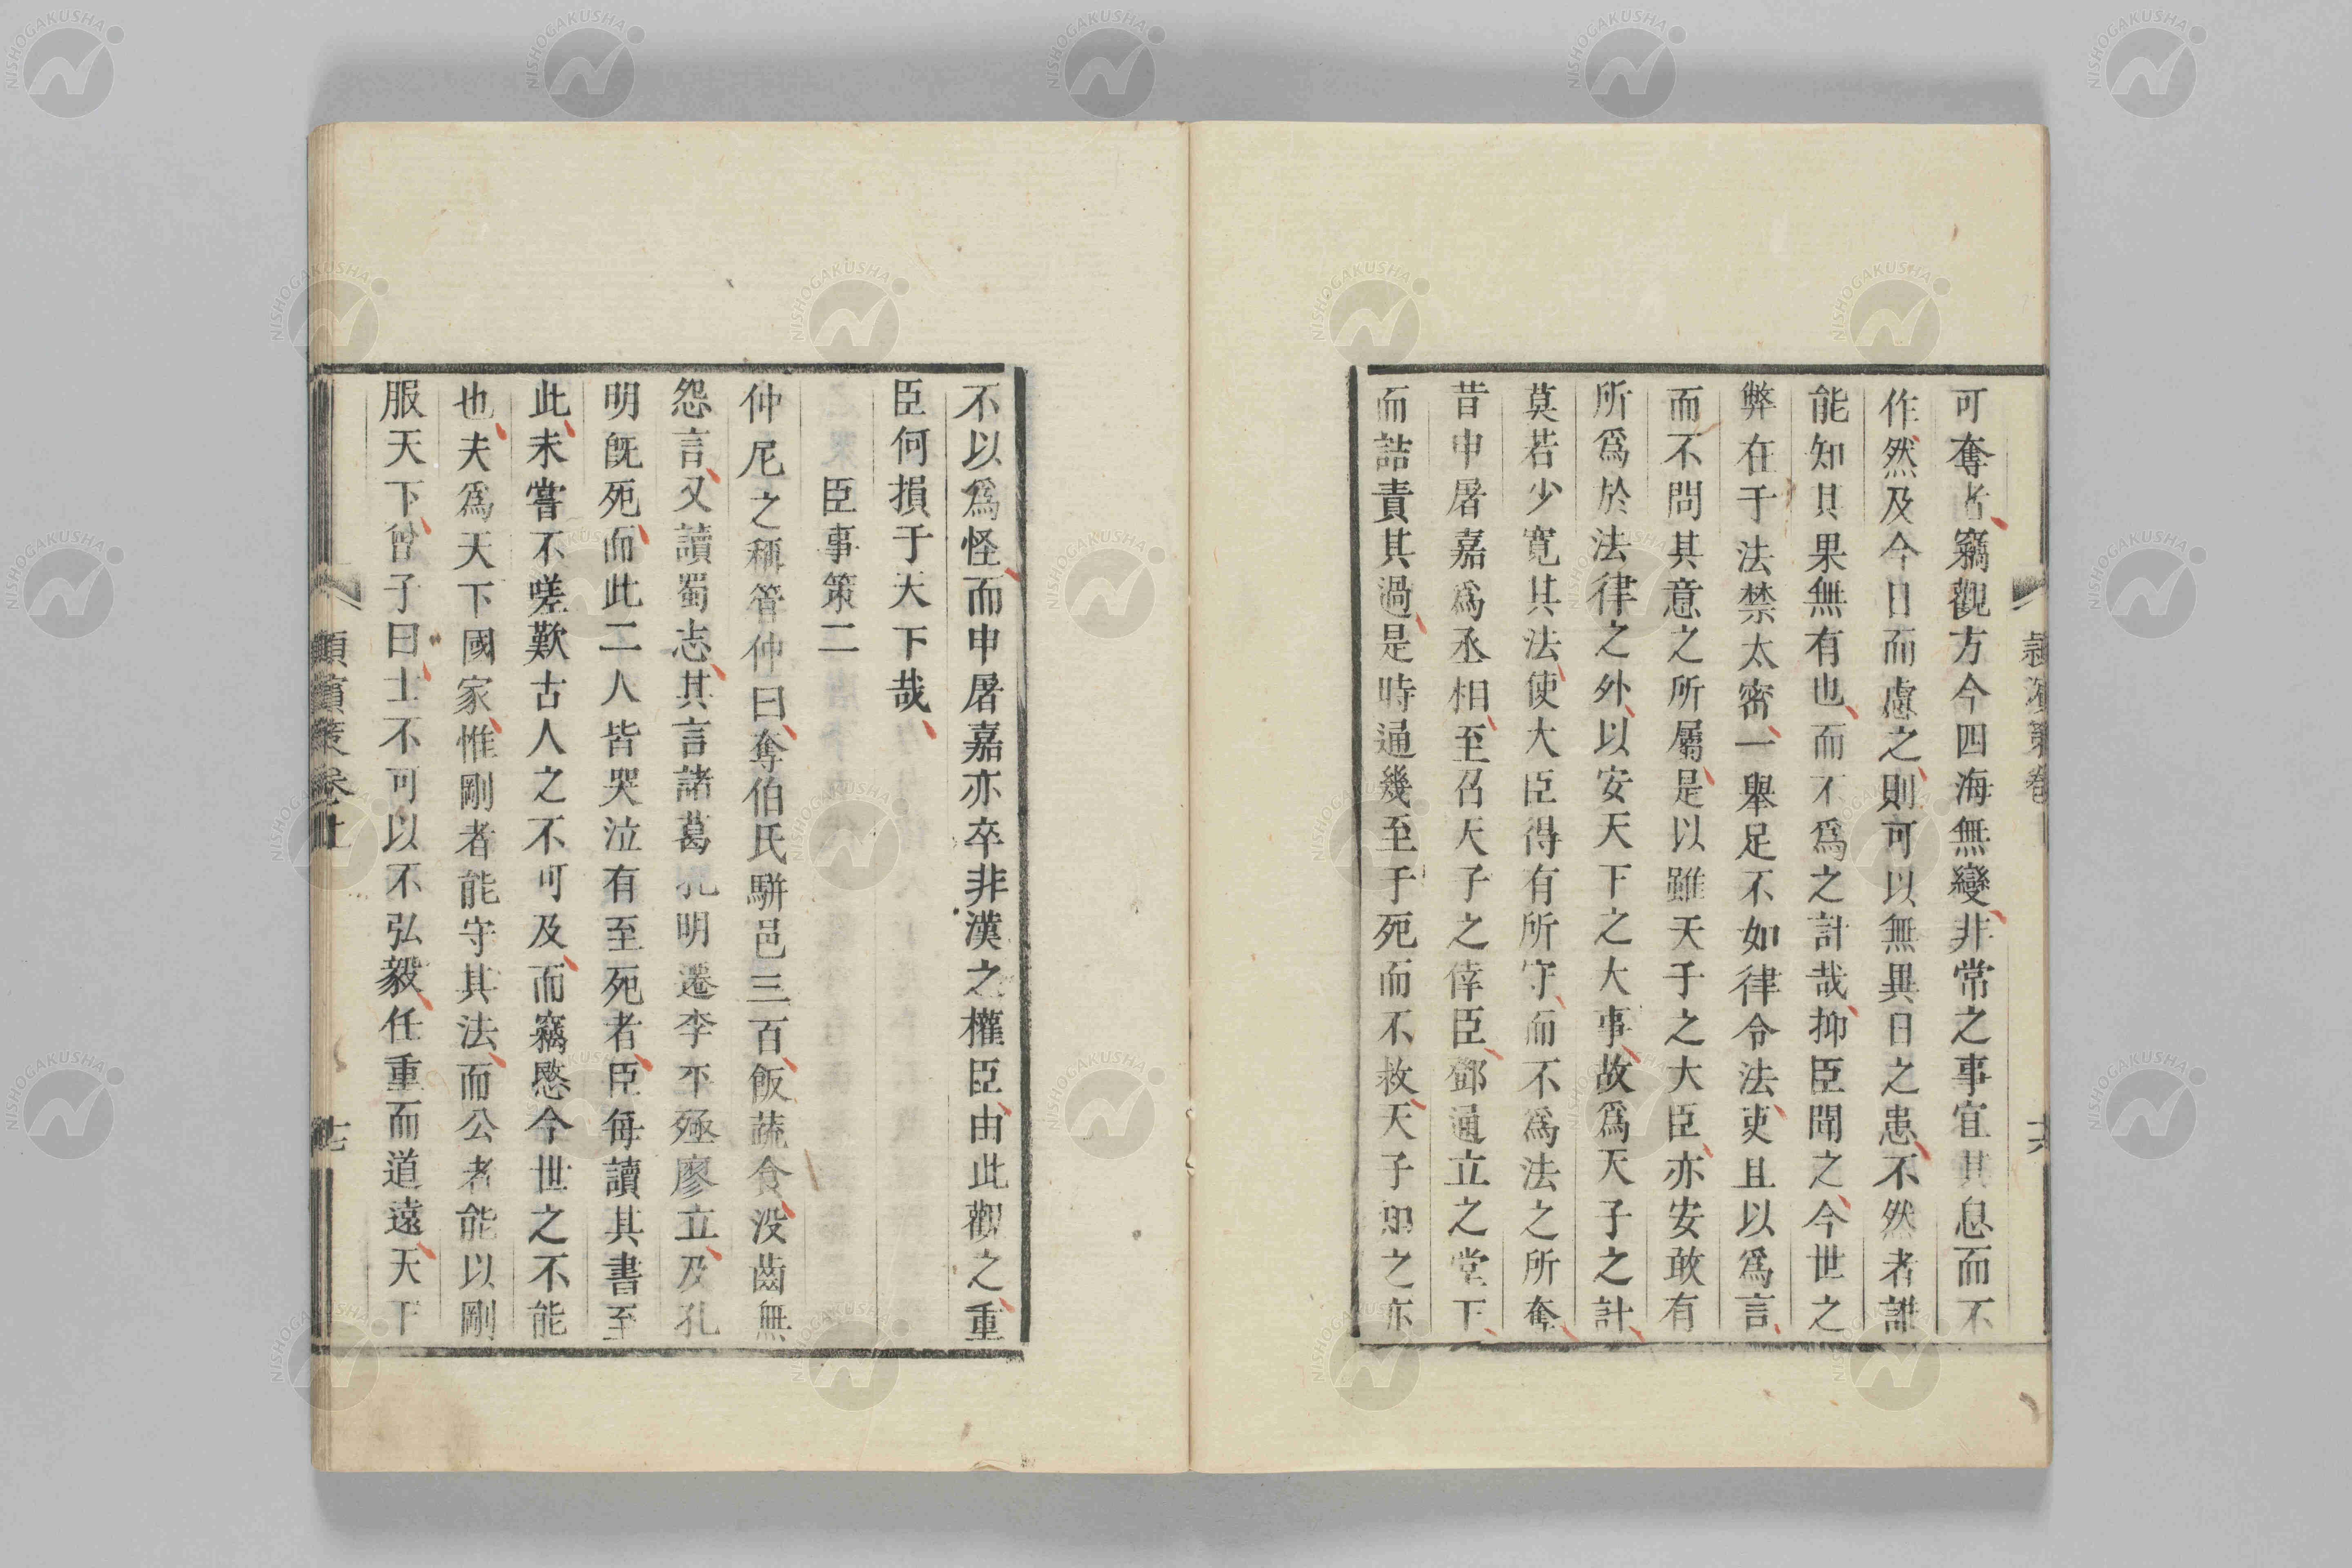 可奪者竊觀方今四海無變非常之事宜其息而不
作然及今日而慮之則可以無異日之患不然者誰
能知其果無有也而不爲之計哉抑臣聞之今世之
弊在于法禁太密一舉足不如律令法吏且以爲言
而不問其意之所屬是以雖天子之大臣亦安敢有
所爲於法律之外以安天下之大事故爲天子之計
莫若少寬其法使大臣得有所守而不爲法之所奪
昔申屠嘉爲丞相至召天子之倖臣鄧通立之堂下
而詰責其過是時通幾至于死而不救天子知之亦
不以爲怪而申屠嘉亦卒非漢之權臣由此觀之重
臣何損于天下哉
臣事策二
仲尼之稱管仲曰奪伯氏駢邑三百飯蔬食没齒無
怨言又讀蜀志其言諸葛孔明遷李平殛廖立及孔
明旣死而此二人皆哭泣有至死者臣每讀其書至
此未嘗不嗟歎古人之不可及而竊愍今世之不能
也夫爲天下國家惟剛者能守其法而公者能以剛
服天下曾子曰士不可以不弘毅任重而道遠天下
NISHOGAKUSHA